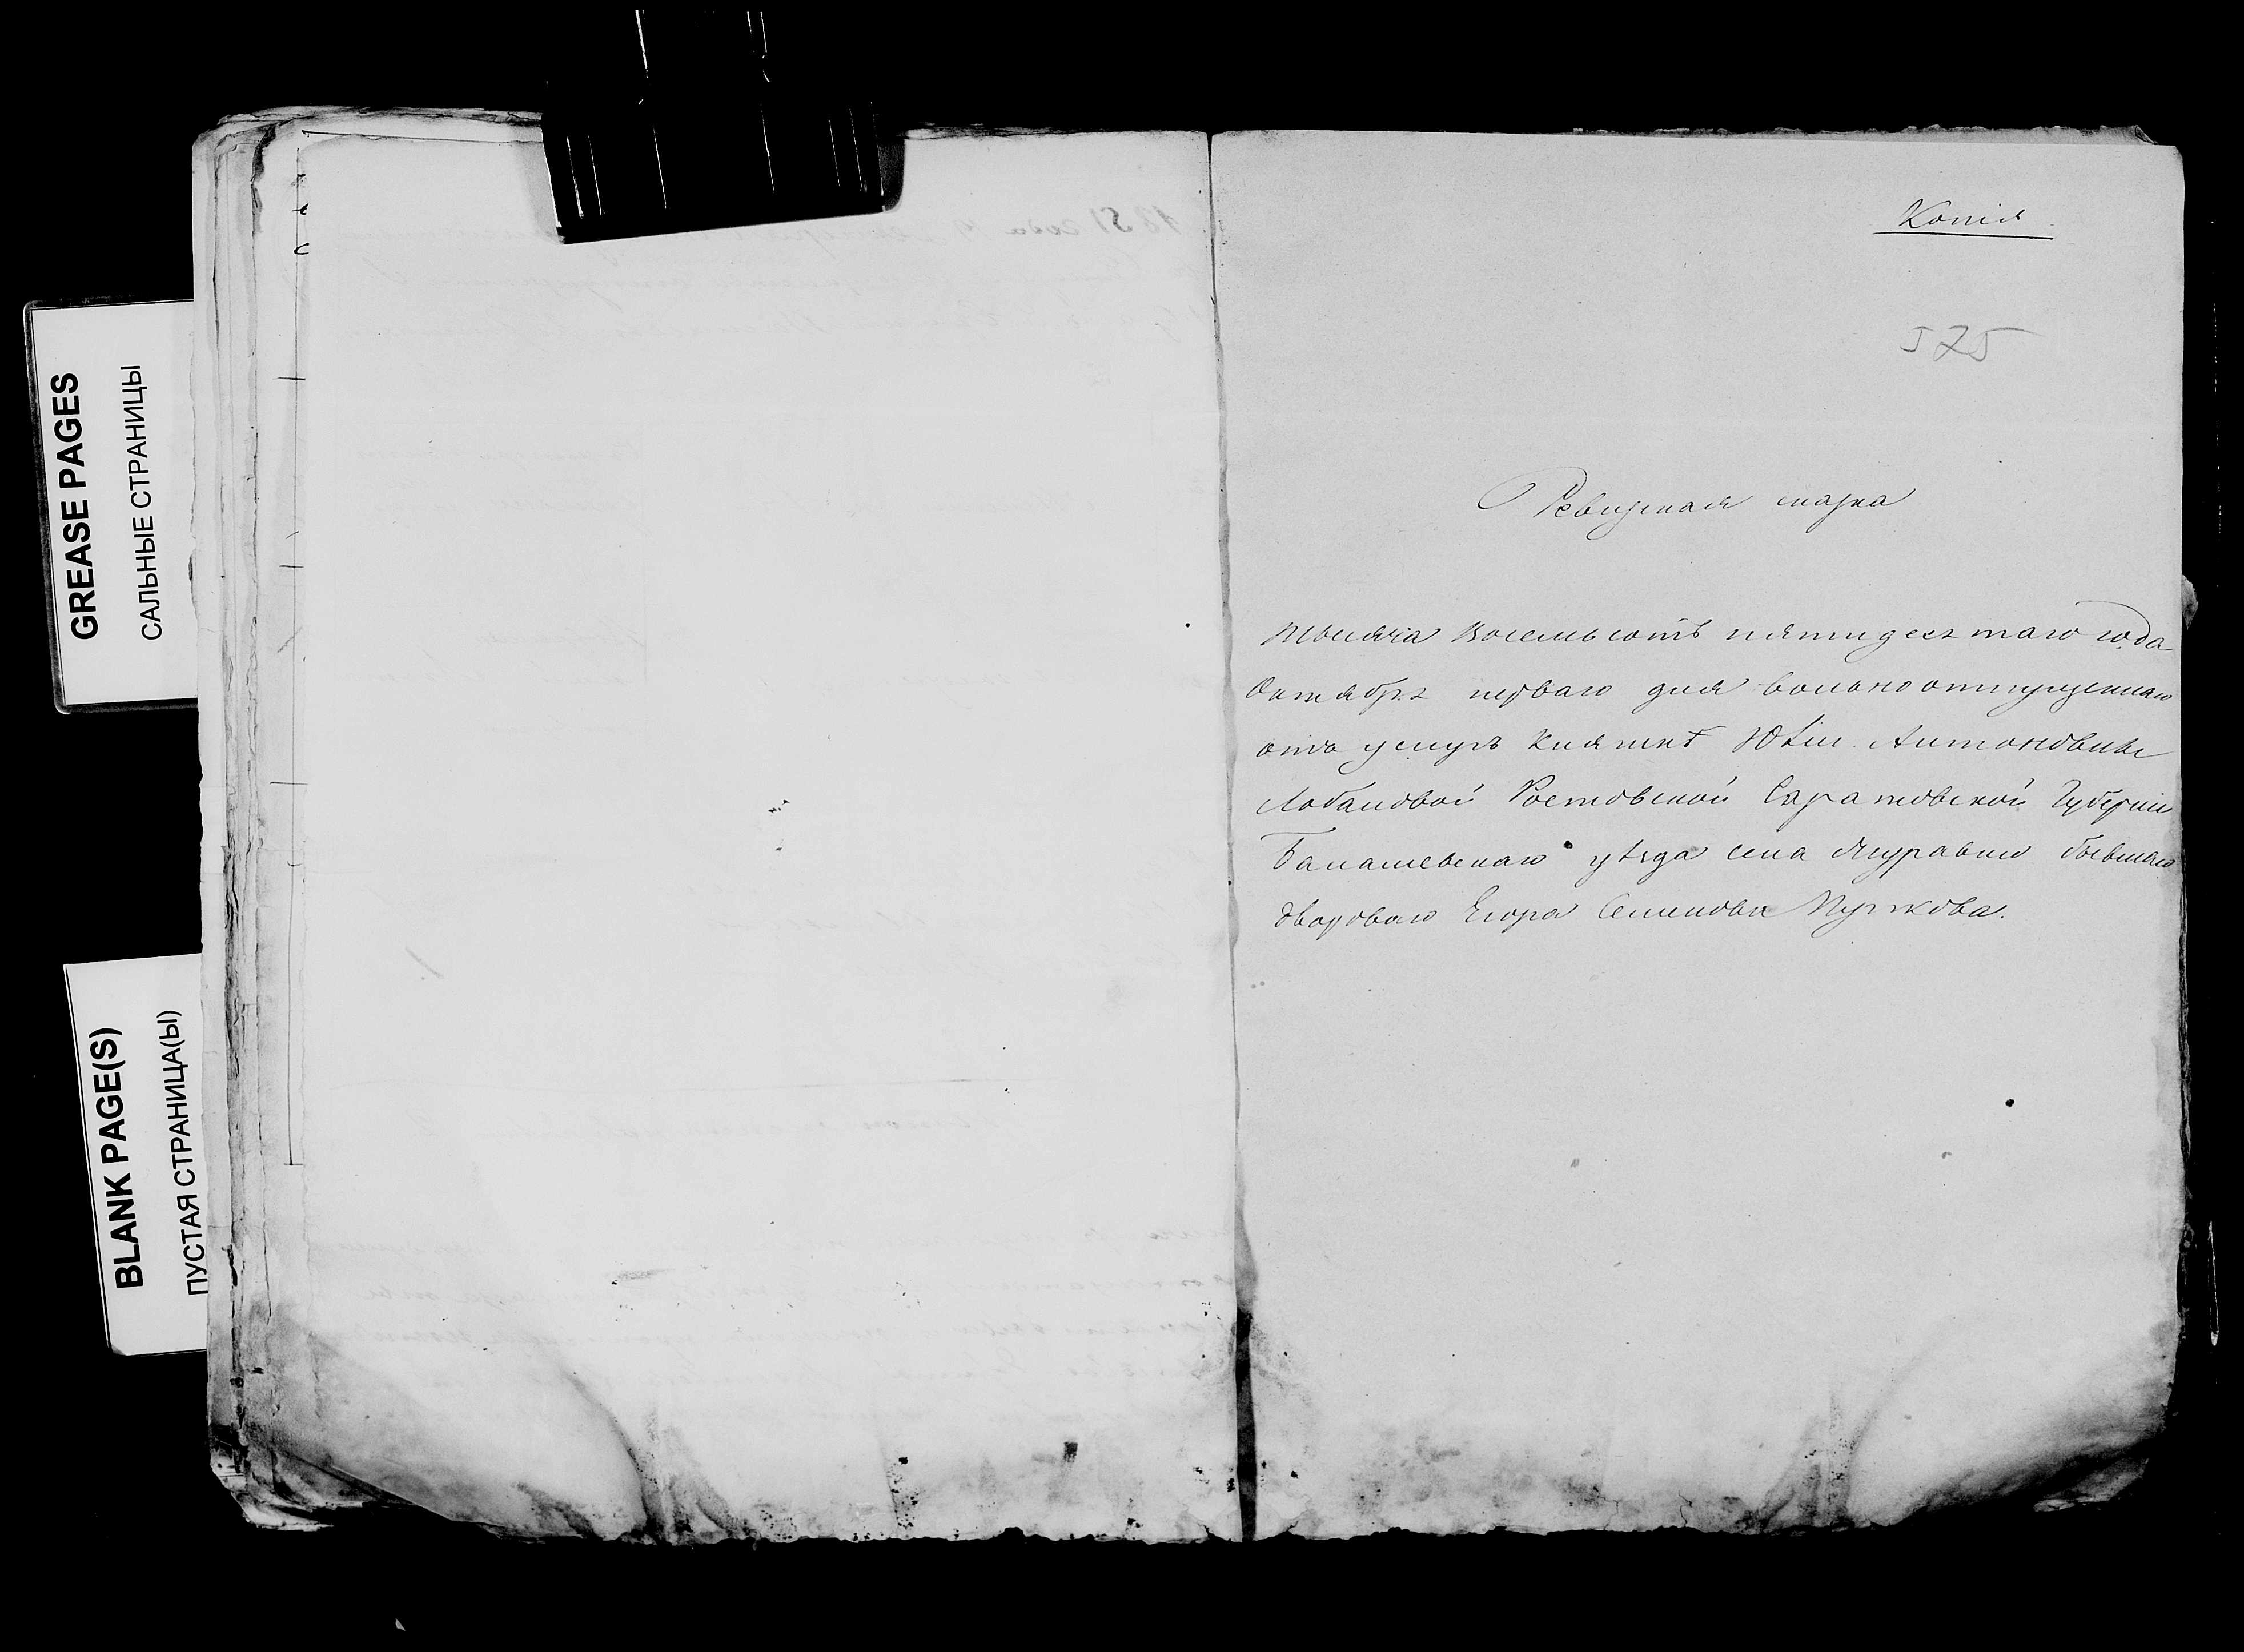 GREASE PAGES
САЛЬНЫЕ СТРАНИЦЫ
BLANK PAGE(S)
ПУСТАЯ СТРАНИЦА(Ы)
Копія
575
Ревизская сказка
тысяча восемьсотъ пятидесятаго года
Октября перваго дня вольноотпущеннаго
отъ услугъ Княгинѣ Юліи Антоновны
Лобановой Ростовской Саратовской Губерніи
Балашевскаго уѣзда села бывшаго
двороваго Егора Семенова